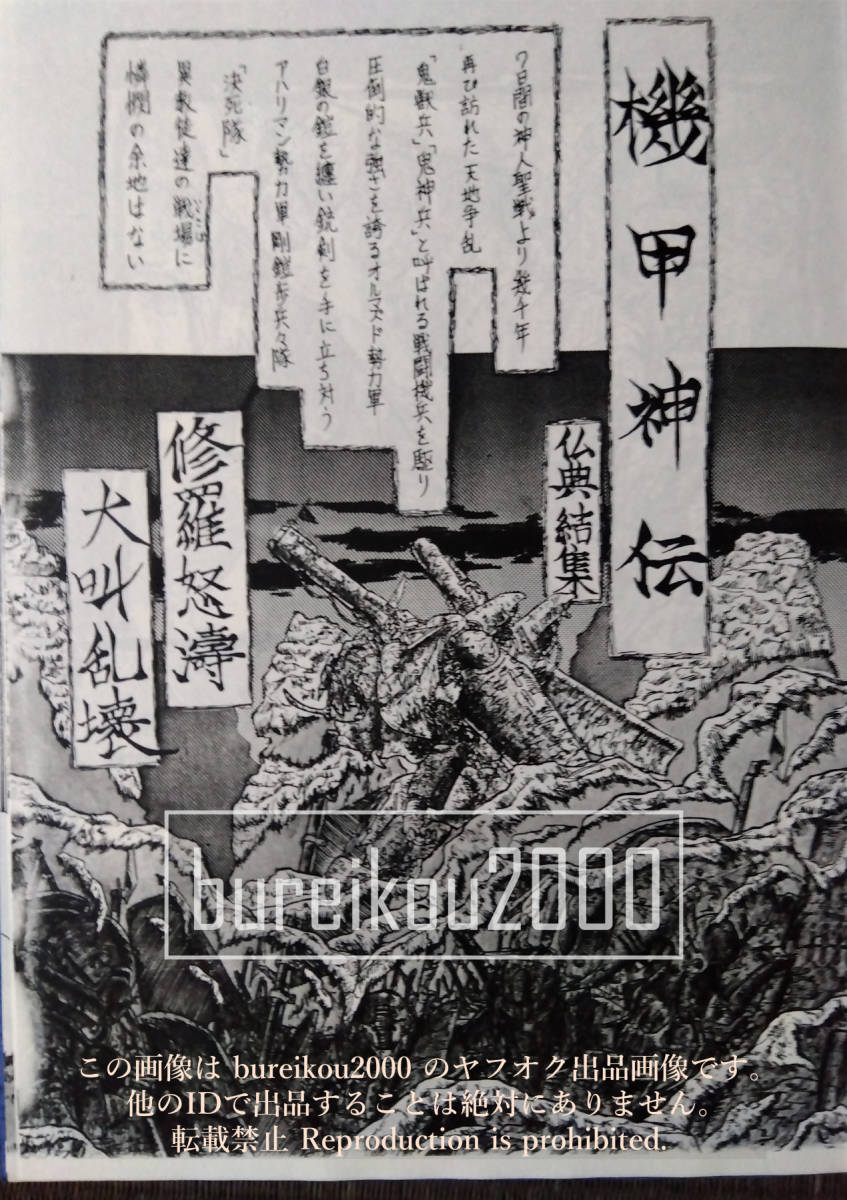 機甲神伝
仏典結集
7日間の神人聖戦より幾千年
再び訪れた天地争乱
「鬼獣兵」「鬼神兵」と呼ばれる戦闘機兵を駆り
圧倒的な強さを誇るオルマズド勢力軍
白銀の鎧を纏い銃剣を手に立ち対う
アハリマン勢力軍剛鎧歩兵々隊
「決死隊」
異教徒達の戦場に
いくさば
憐憫の余地はない
修羅怒濤
犬叫乱壊
bureikou2000
この画像は bureikou2000 のヤフオク出品画像です。
他のIDで出品することは絶対にありません。
転載禁止 Reproduction is prohibited.